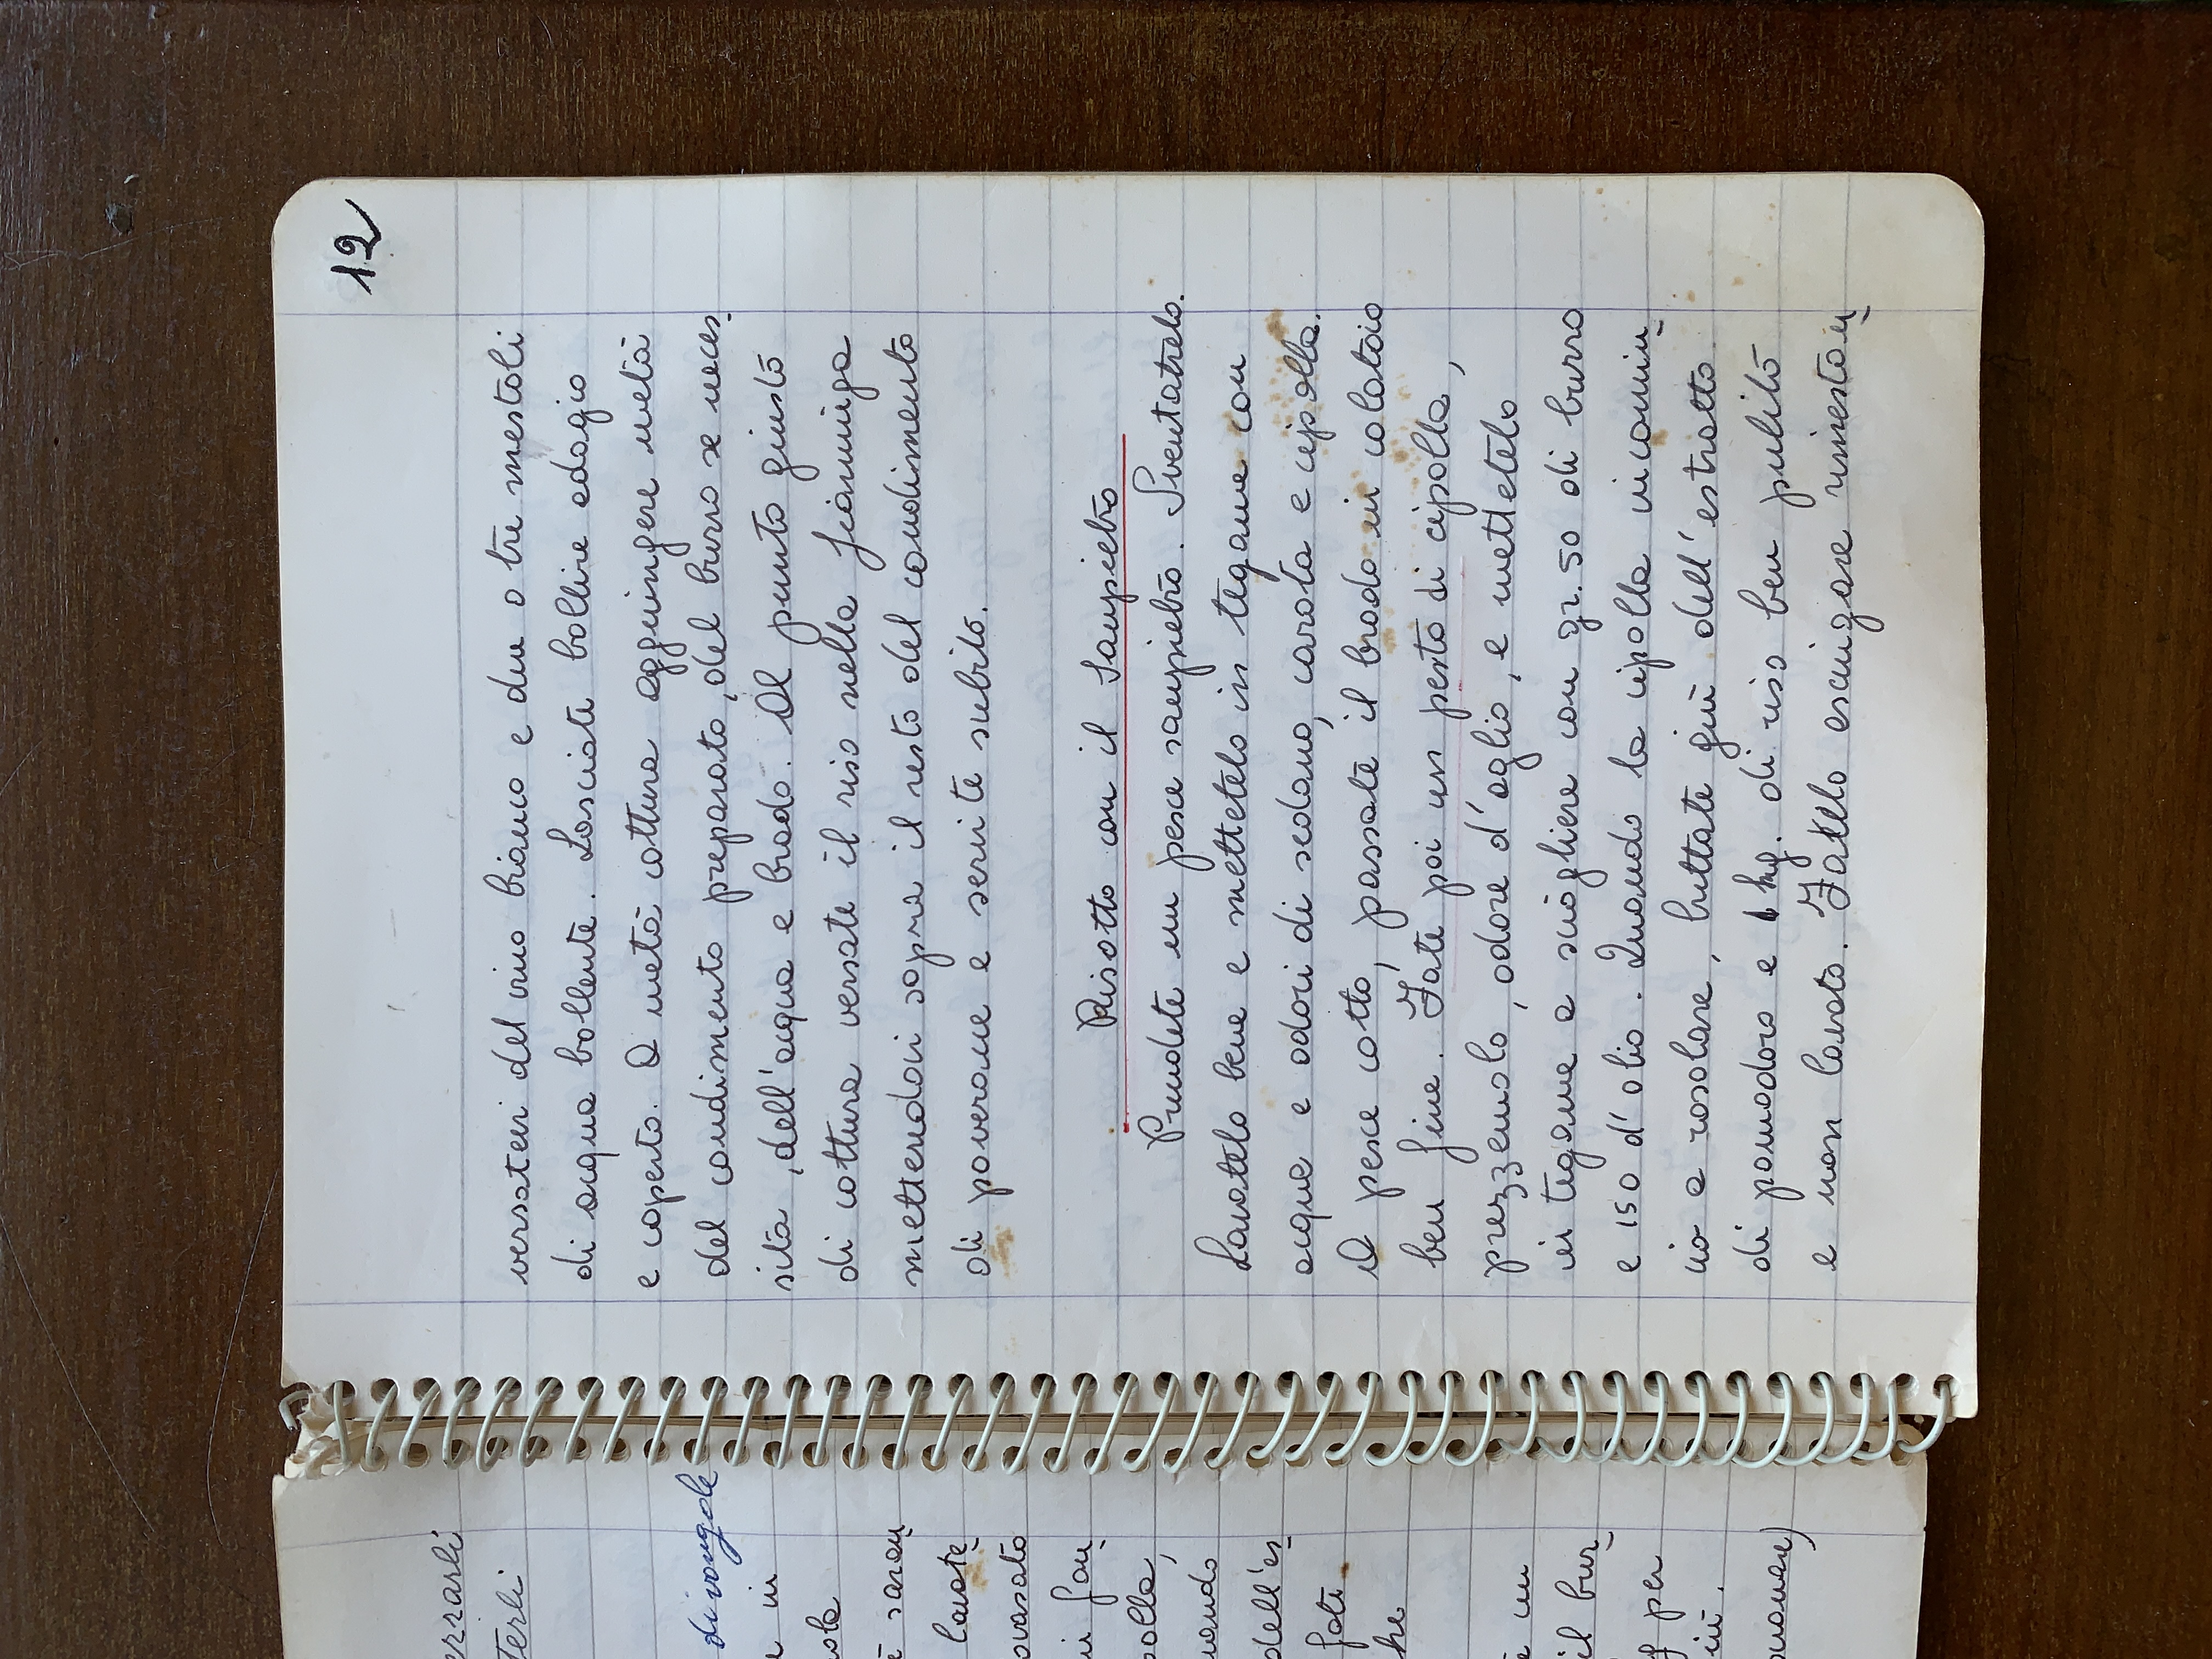 errarli
terli
di vongole
e in
ola
e saran
lavate
ovasato
in fon
polla,
uando
dell'es
fate
he
e un
il bur
g per
iù.
12
versatevi del vino bianco e due o tre mestoli
di acqua bollente. Lasciate bollire adagio
e coperto. A metà cottura aggiungere metà
del condimento preparato, del burro se neces
sita, dell'acqua e brodo. Al punto giusto
di cottura versate il riso nella fiamminga
mettendovi sopra il resto del condimento
di poverone e servite subito.
Risotto con il Sanpietro
Prendete un pesce sanpietro. Sventatrelo.
Lavatelo bene e mettetelo in tegame con
acqua e odori di sedano, carota e cipolla.
A pesce cotto, passate il brodo in colatoio
ben fine. Fate poi un pesto di cipolla,
prezzemolo, odore d'aglio, e mettetelo
in tegame a sciogliere con gr. 50 di burro
e 150 d'olio. Quando la cipolla incomin
cia a rosolare, buttate giù dell'estratto
di pomodoro e 1 kg. di riso ben pulito
e non lavato. Fatelo asciugare rimestan